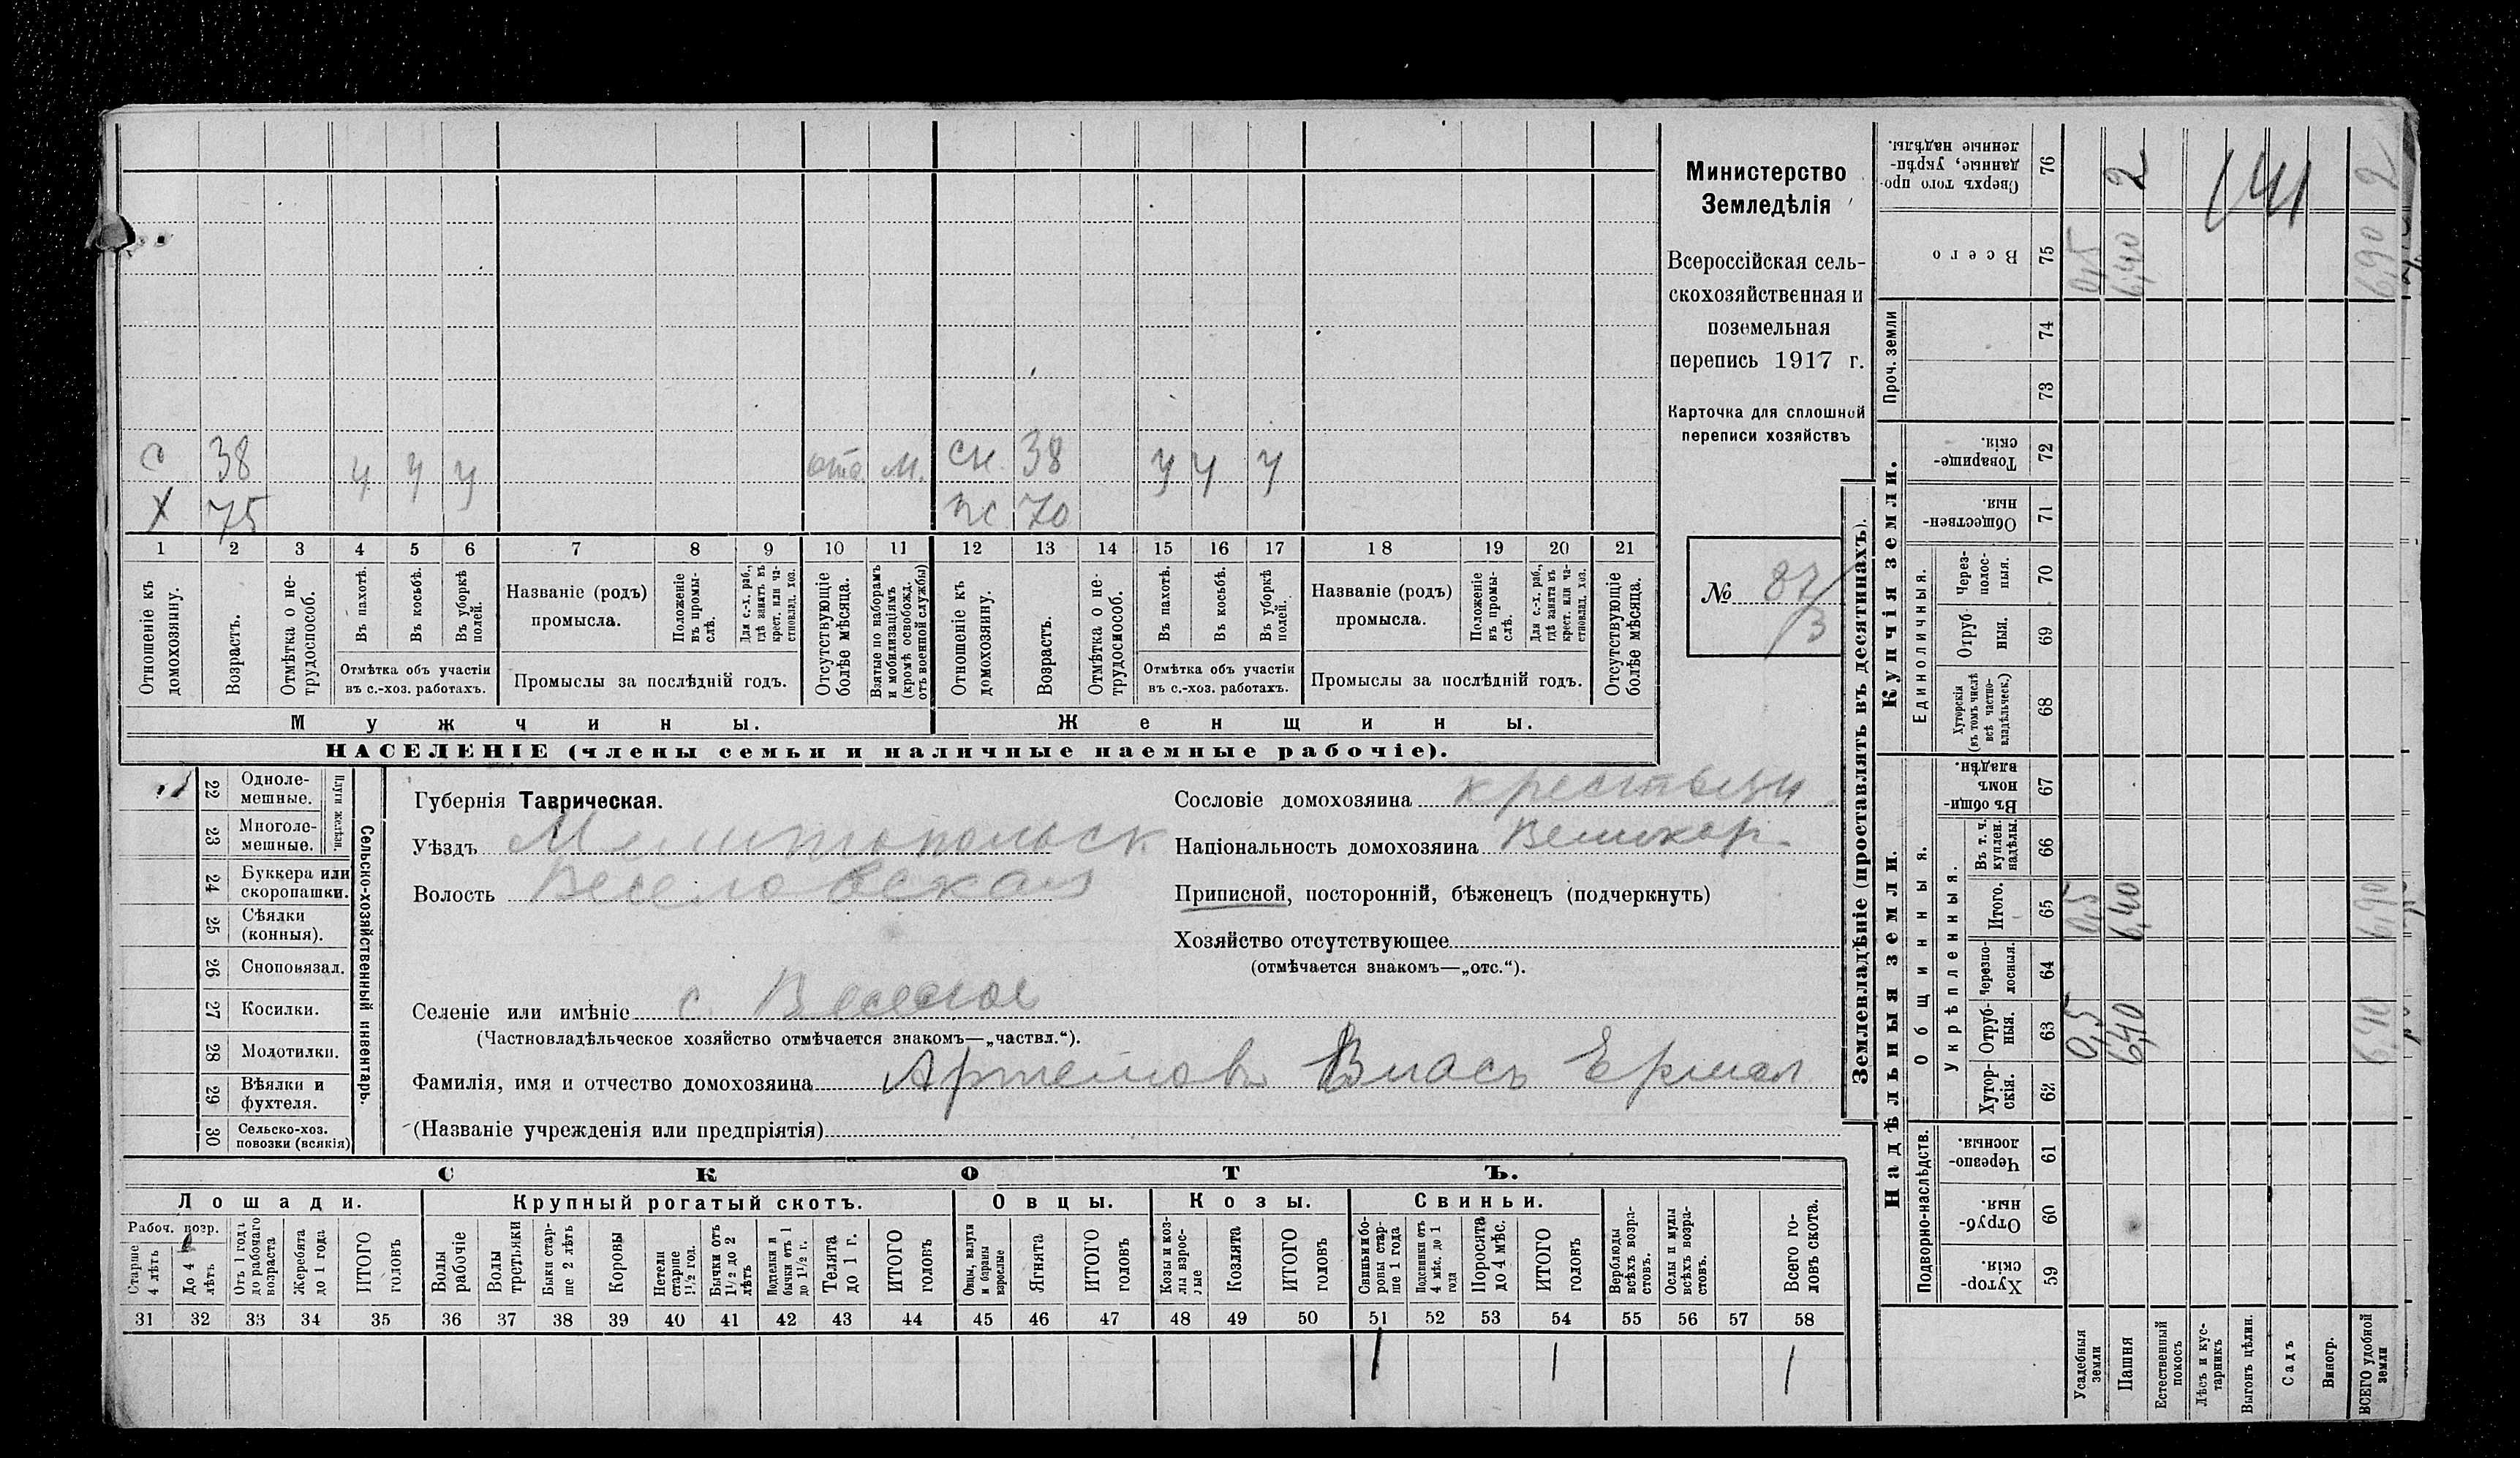 Министерство
Земледѣлія
Всероссійская сель-
скохозяйственная и
поземельная
перепись 1917 г.
Карточка для сплошной
переписи хозяйствъ
№ 87/3
С 38 ч ч ч отс. м. сн. 38 ч ч ч
Х 75 жс 70
1 2 3 4 5 6 7 8 9 10 11 12 13 14 15 16 17 18 19 20 21
Отношеніе къ домохозяину.
Возрастъ.
Отмѣтка о не-трудоспособ.
Въ пахотѣ.
Въ косьбѣ.
Въ уборкѣ полей.
Отмѣтка объ участіи
въ с.-хоз. работахъ.
Названіе (родъ)
промысла.
Положеніе въ промы-слѣ.
Для с.-х. раб., гдѣ занятъ въ крест. или ча-стновлад. хоз.
Промыслы за послѣдній годъ.
Отсутствующіе болѣе мѣсяца.
Взятые по наборамъ и мобилизаціямъ (кромѣ освобожд. отъ военной службы)
Отношеніе къ домохозяину.
Возрастъ.
Отмѣтка о не-трудоспособ.
Въ пахотѣ.
Въ косьбѣ.
Въ уборкѣ полей.
Отмѣтка объ участіи
въ с.-хоз. работахъ.
Названіе (родъ)
промысла.
Положеніе въ промы-слѣ.
Для с.-х. раб., гдѣ занята въ крест. или ча-стновлад. хоз.
Промыслы за послѣдній годъ.
Отсутствующіе болѣе мѣсяца.
Мужчины.
Женщины.
НАСЕЛЕНІЕ (члены семьи и наличные наемные рабочіе).
22 Одноле-мешные.
23 Многоле-мешные.
Плуги желѣзн.
24 Буккера или скоропашки.
25 Сѣялки (конныя).
26 Сноповязал.
27 Косилки.
28 Молотилки.
29 Вѣялки и фухтеля.
30 Сельско-хоз. повозки (всякія)
Сельско-хозяйственный инвентарь.
Губернія Таврическая.
Уѣздъ Мелитопольск
Волость Веселовская
Селеніе или имѣніе с. Веселое
(Частновладѣльческое хозяйство отмѣчается знакомъ—„частвл.“).
Фамилія, имя и отчество домохозяина Артемовъ Власъ Ермол
(Названіе учрежденія или предпріятія)
Сословіе домохозяина крестьян
Національность домохозяина Великор.
Приписной, посторонній, бѣженецъ (подчеркнуть)
Хозяйство отсутствующее
(отмѣчается знакомъ—„отс.“).
СКОТЪ.
Лошади.
Крупный рогатый скотъ.
Овцы.
Козы.
Свиньи.
Рабоч. возр.
Старше 4 лѣтъ
До 4 лѣтъ
Отъ 1 года до рабочаго возраста
Жеребята до 1 года
ИТОГО головъ
Волы рабочіе
Волы третьяки
Быки стар-ше 2 лѣтъ
Коровы
Нетели старше 1 1/2 год.
Бычки отъ 1 1/2 до 2 лѣтъ
Подтелки и бычки отъ 1 до 1 1/2 г.
Телята до 1 г.
ИТОГО головъ
Овцы, валухи и бараны взрослые
Ягнята
ИТОГО головъ
Козы и коз-лы взрос-лые
Козлята
ИТОГО головъ
Свиньи бо-ровы стар-ше 1 года
Подсвинки отъ 4 мѣс. до 1 года
Поросята до 4 мѣс.
ИТОГО головъ
Верблюды всѣхъ возра-стовъ.
Ослы и мулы всѣхъ возра-стовъ.
Всего го-ловъ скота.
31 32 33 34 35 36 37 38 39 40 41 42 43 44 45 46 47 48 49 50 51 52 53 54 55 56 57 58
1 1 1
Землевладѣніе (проставлять въ десятинахъ).
Сверхъ того про-данные, укрѣп-ленные надѣлы. 76 2 2
141
Всего 75 0,5 6,40 6,90
Проч. земли 74
73
Купчія земли.
Товарище-скія. 72
Обществен-ныя. 71
Единоличныя.
Через-полос-ныя. 70
Отруб-ныя. 69
Хуторскія (въ томъ числѣ всѣ частно-владѣльческ.) 68
Надѣльныя земли.
Въ общин-номъ владѣн. 67
Общинныя.
Укрѣпленныя.
Въ т. ч. куплен. надѣлы. 66
Итого. 65 0,5 6,40 6,90
Черезпо-лосныя. 64
Отруб-ныя. 63 0,5 6,40 6,90
Хутор-скія. 62
Подворно-наслѣдств.
Черезпо-лосныя. 61
Отруб-ныя. 60
Хутор-скія. 59
Усадебныя земли
Пашня
Естественный покосъ
Лѣсъ и кус-тарникъ
Выгонъ цѣлин.
Садъ
Виногр.
ВСЕГО удобной земли